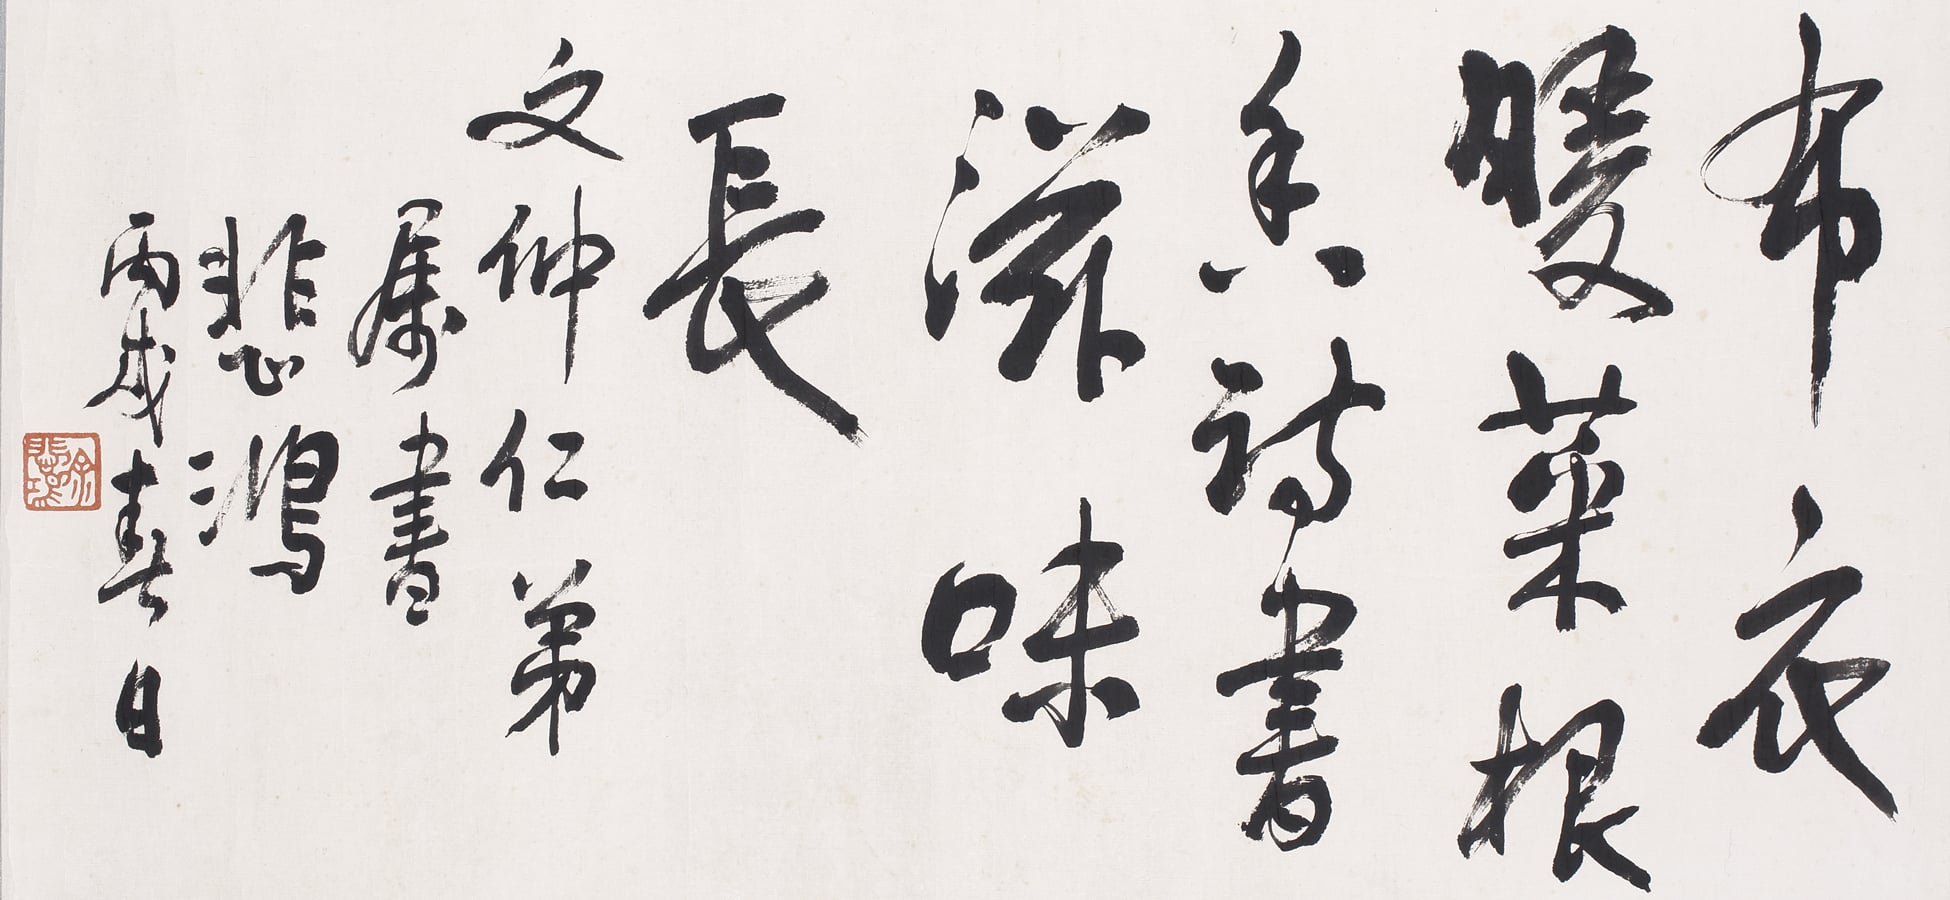 布衣
暖菜根
香詩書
滋味
長
文仲仁弟
属書
悲鴻
丙戌春日
徐悲鴻